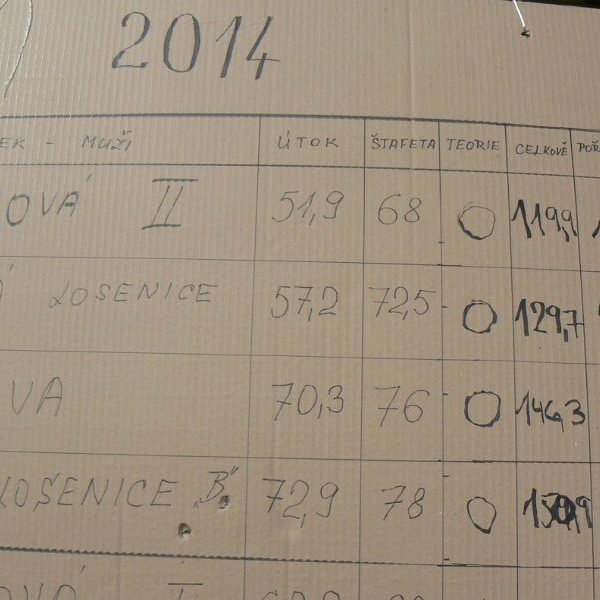 2014
EK - MUŽI ÚTOK ŠTAFETA TEORIE CELKOVĚ POŘ
OVÁ II 51,9 68 0 119,9 1
Á LOSENICE 57,2 72,5 0 129,7
VA 70,3 76 0 146,3
LOSENICE „B“ 72,9 78 0 150,9
OVÁ I